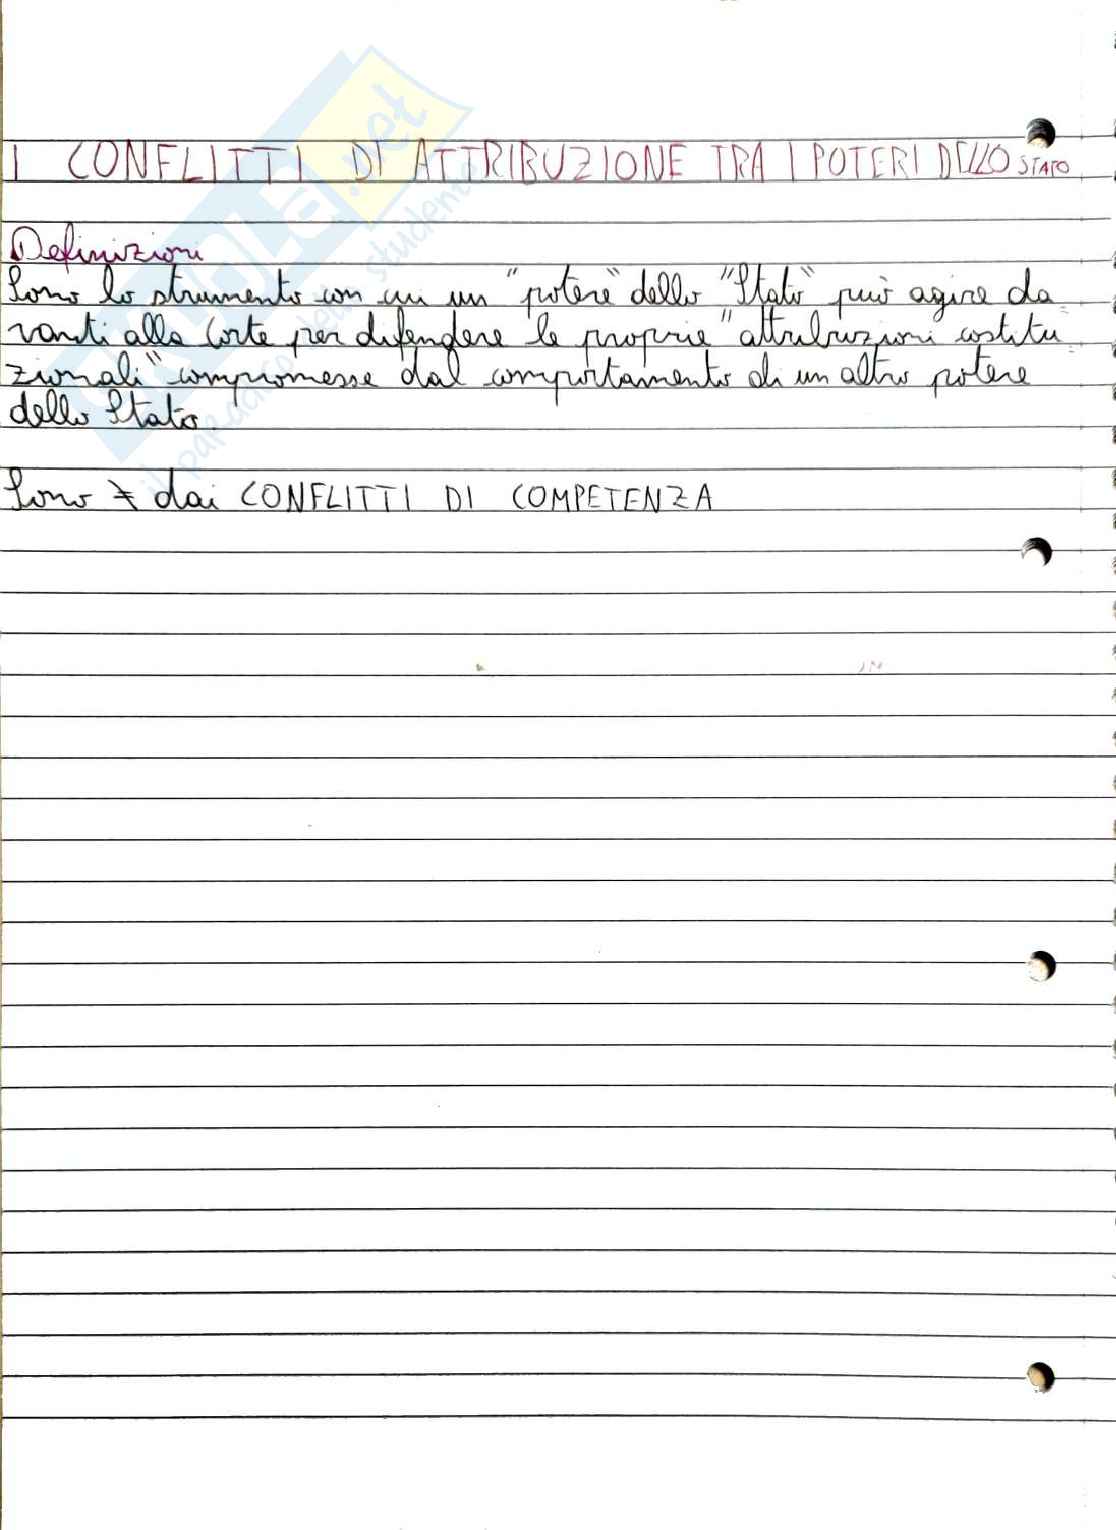 I CONFLITTI DI ATTRIBUZIONE TRA I POTERI DELLO STATO
Definizioni
Sono lo strumento con cui un "potere" dello "Stato" può agire da
vanti alla Corte per difendere le proprie "attribuzioni costitu
zionali" compromesse dal comportamento di un altro potere
dello Stato.
Sono ≠ dai CONFLITTI DI COMPETENZA